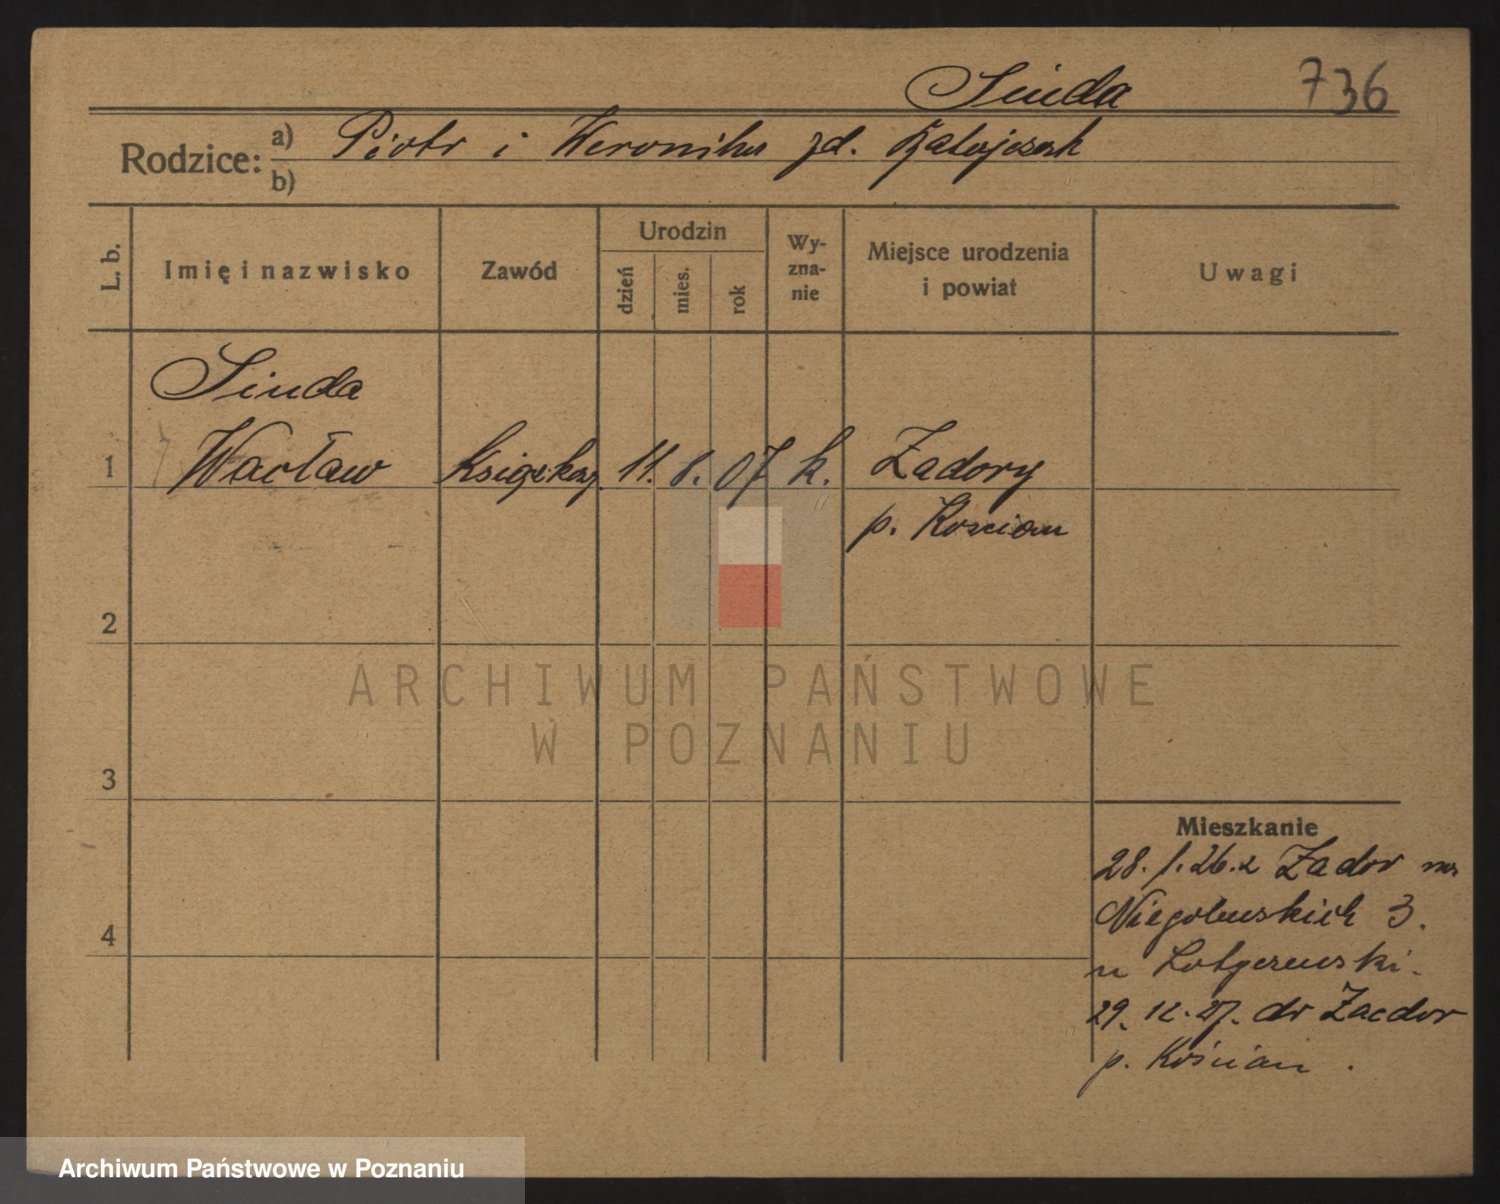 Siuda 736
Rodzice: a) Piotr i Weronika zd. Ratajczak
b)
L. b. Imię i nazwisko Zawód Urodzin dzień mies. rok Wy-zna-nie Miejsce urodzenia i powiat Uwagi
Siuda
1 Wacław 11. 8. 07 k. Zadory
p. Kościan
2
3
4
Mieszkanie
28. 1. 26. z Zador na
Niegolewskich 3.
u
29. 12. 27. do Zador
p. Kościan.
ARCHIWUM PAŃSTWOWE
W POZNANIU
Archiwum Państwowe w Poznaniu